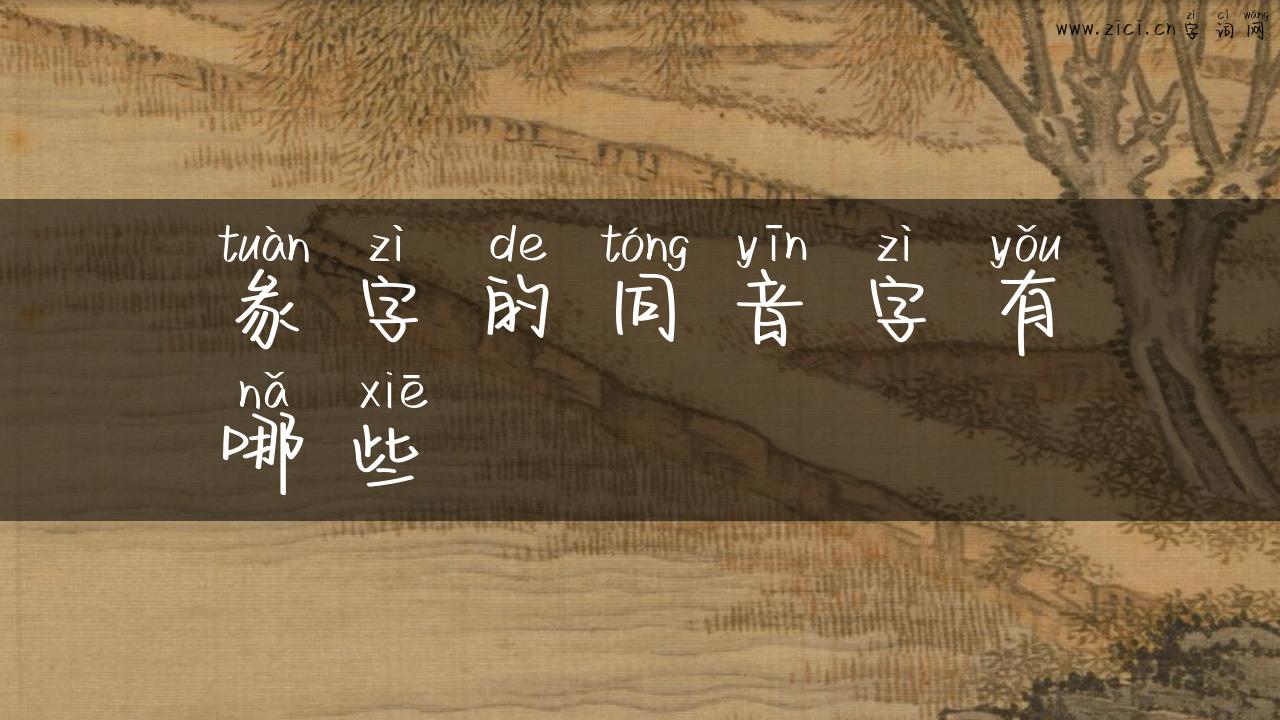 zì cí wǎng
www.zici.cn字词网
tuàn zì de tóng yīn zì yǒu
彖字的同音字有
nǎ xiē
哪些